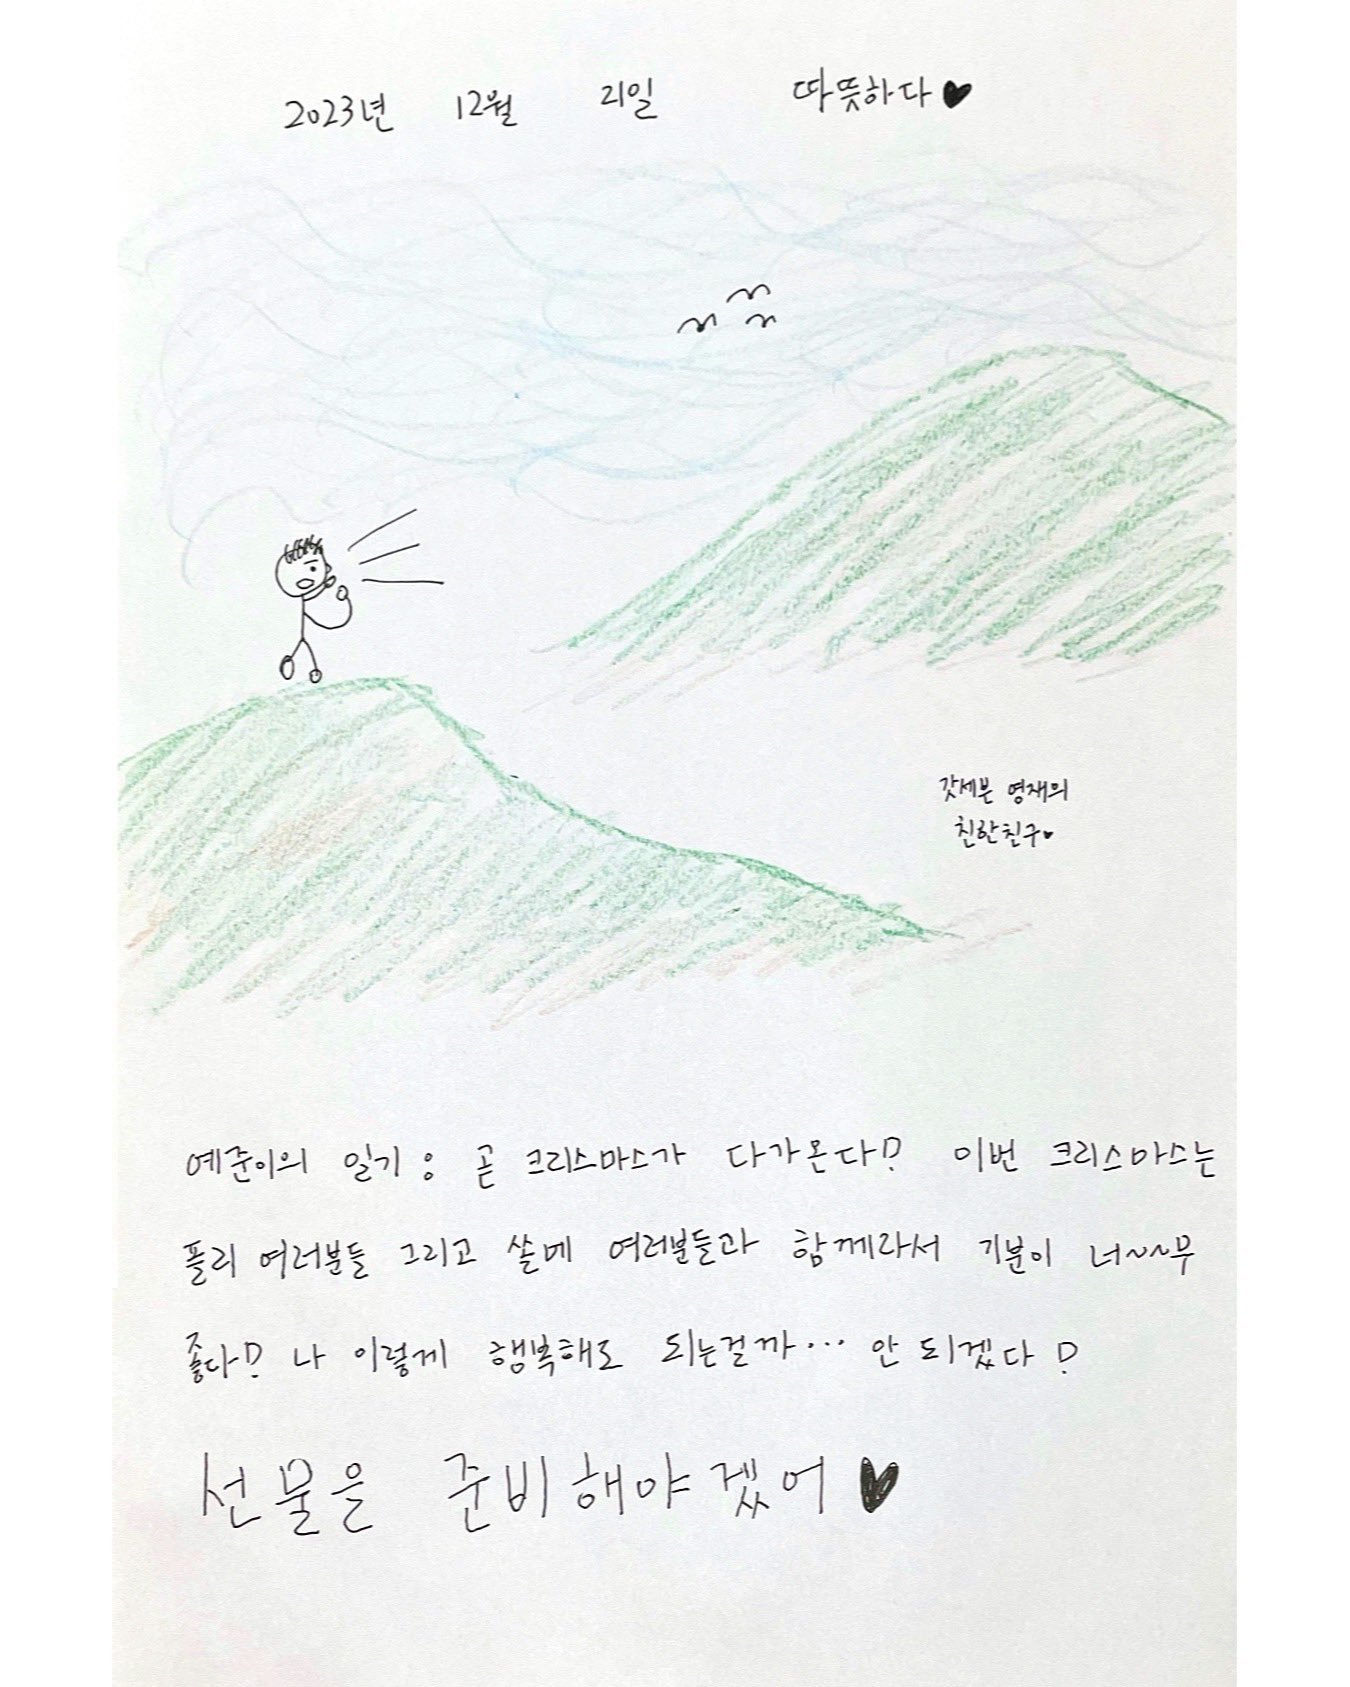 2023년 12월 21일 따뜻하다♥
갓세븐 영재의
친한친구♥
예준이의 일기 : 곧 크리스마스가 다가온다! 이번 크리스마스는
플리 여러분들 그리고 쏠메 여러분들과 함께라서 기분이 너~~무
좋다! 나 이렇게 행복해도 되는걸까... 안 되겠다!
선물을 준비해야겠어♥